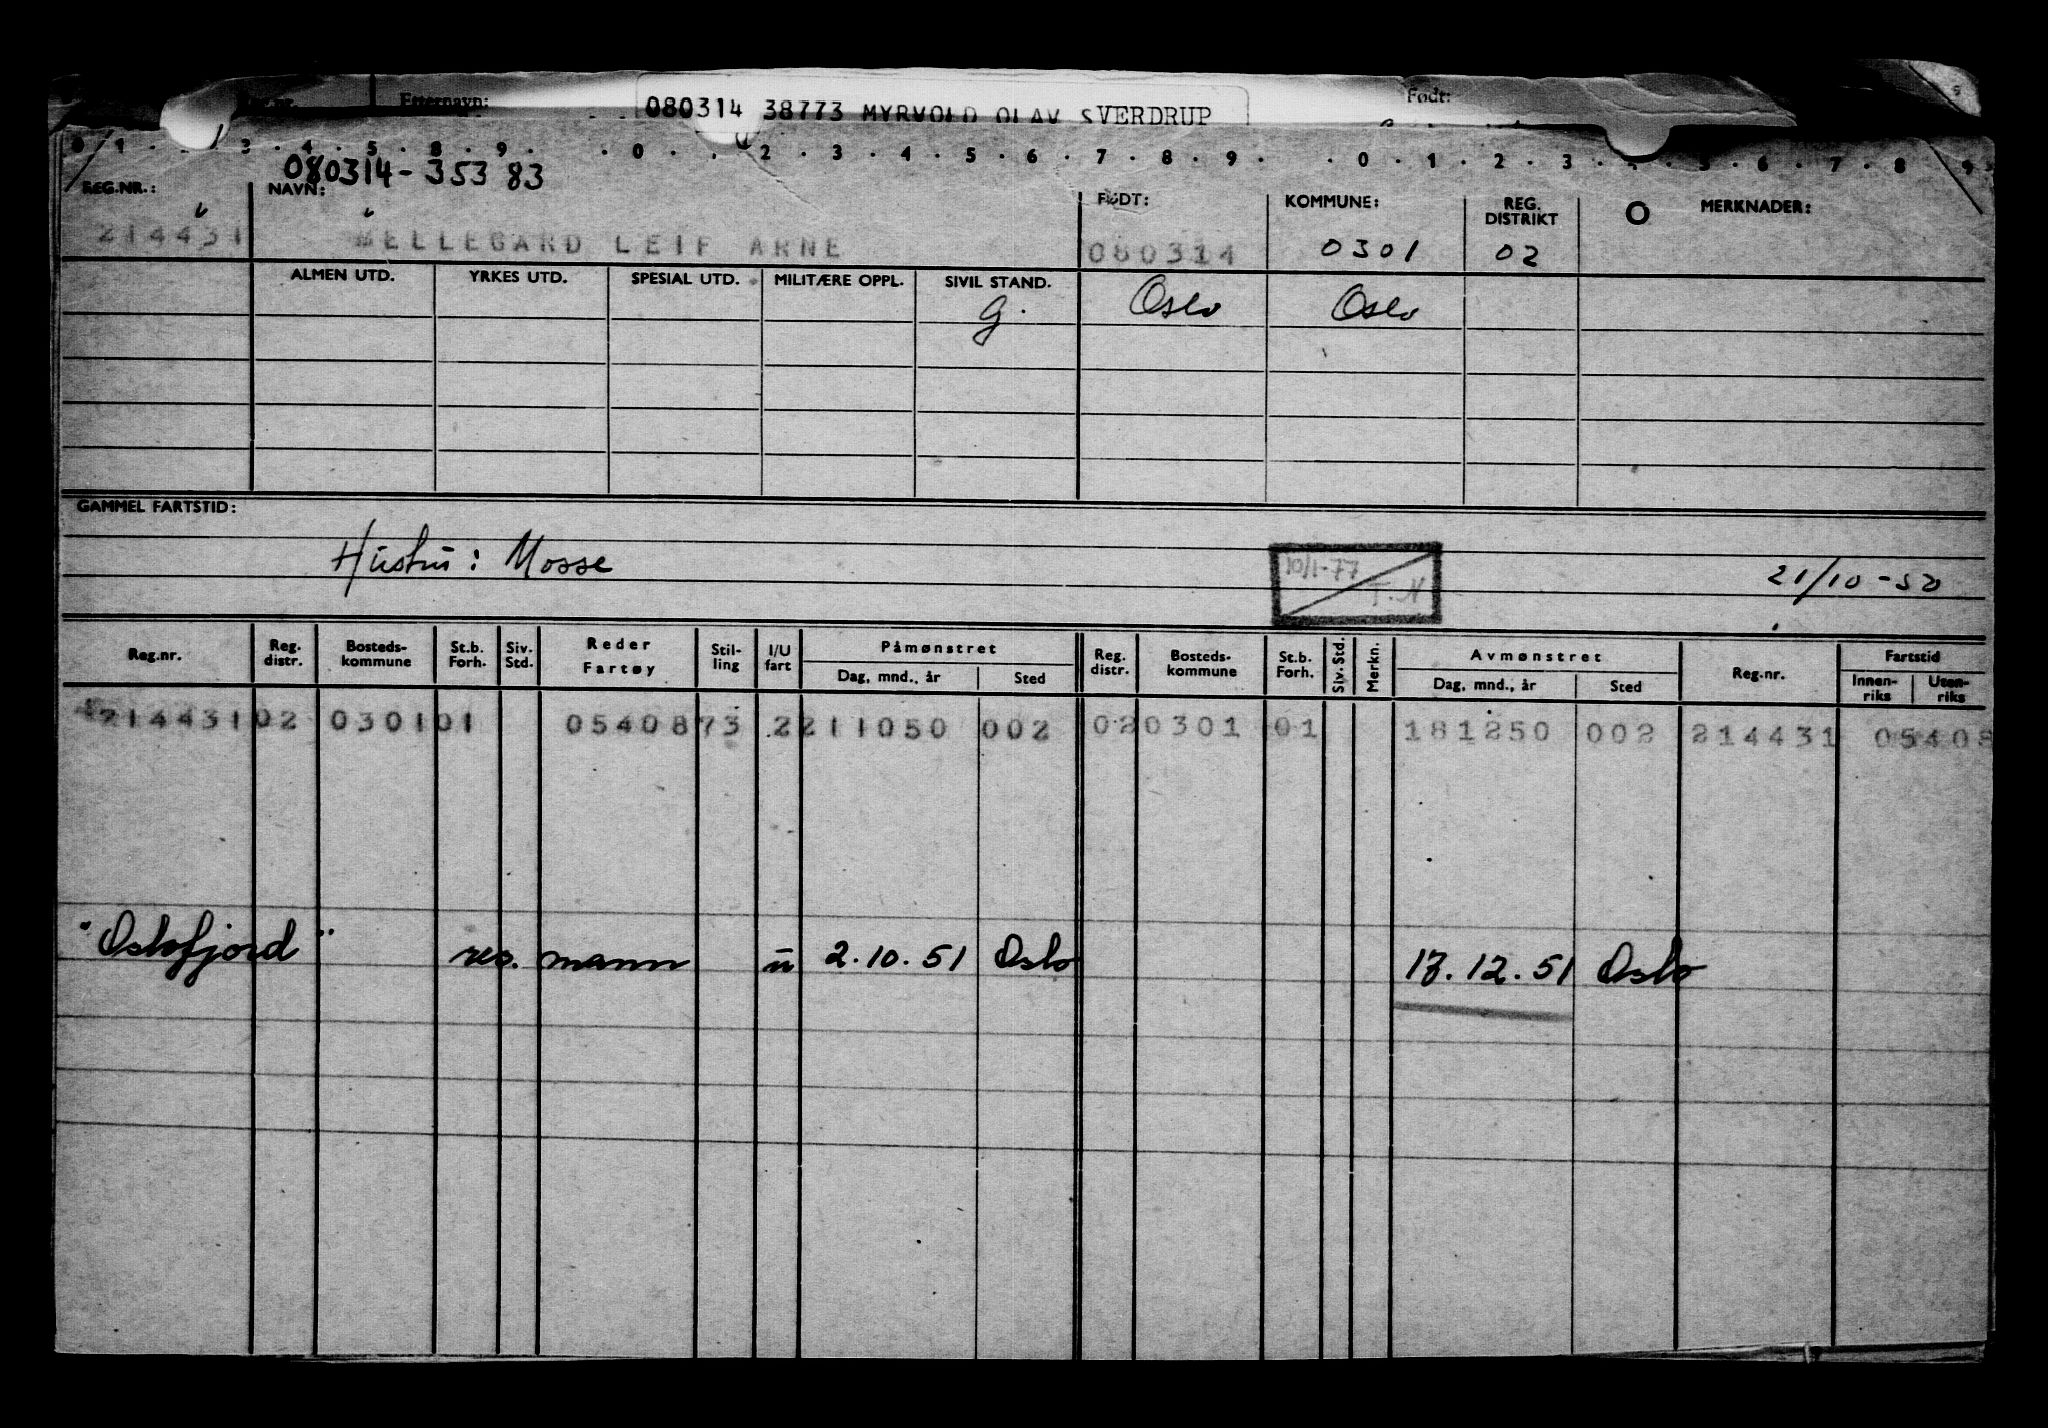 Efternavn: 080314 38773 MYRVOLD OLAV SVERDRUP Født:
080314-35383
REG.NR.: NAVN: FØDT: KOMMUNE: REG. DISTRIKT MERKNADER:
214431 MELLEGARD LEIF ARNE 080314 0301 02
ALMEN UTD. YRKES UTD. SPESIAL UTD. MILITÆRE OPPL. SIVIL STAND.
g. Oslo Oslo
GAMMEL FARTSTID:
Hustru: Mosse
10/1-77
T.N 21/10-50
Reg.nr. Reg. distr. Bosteds-kommune St.b. Forh. Siv. Std. Reder Fartøy Stil-ling I/U fart Påmønstret Reg. distr. Bosteds-kommune St.b. Forh. Siv. Std. Merkn. Avmønstret Reg.nr. Fartstid
Dag, mnd., år Sted Dag, mnd., år Sted Innen-riks Uten-riks
214431 02 0301 01 05408 73 2 211050 002 02 0301 01 181250 002 214431 05408
"Oslofjord" res. mann u 2.10.51 Oslo 17.12.51 Oslo